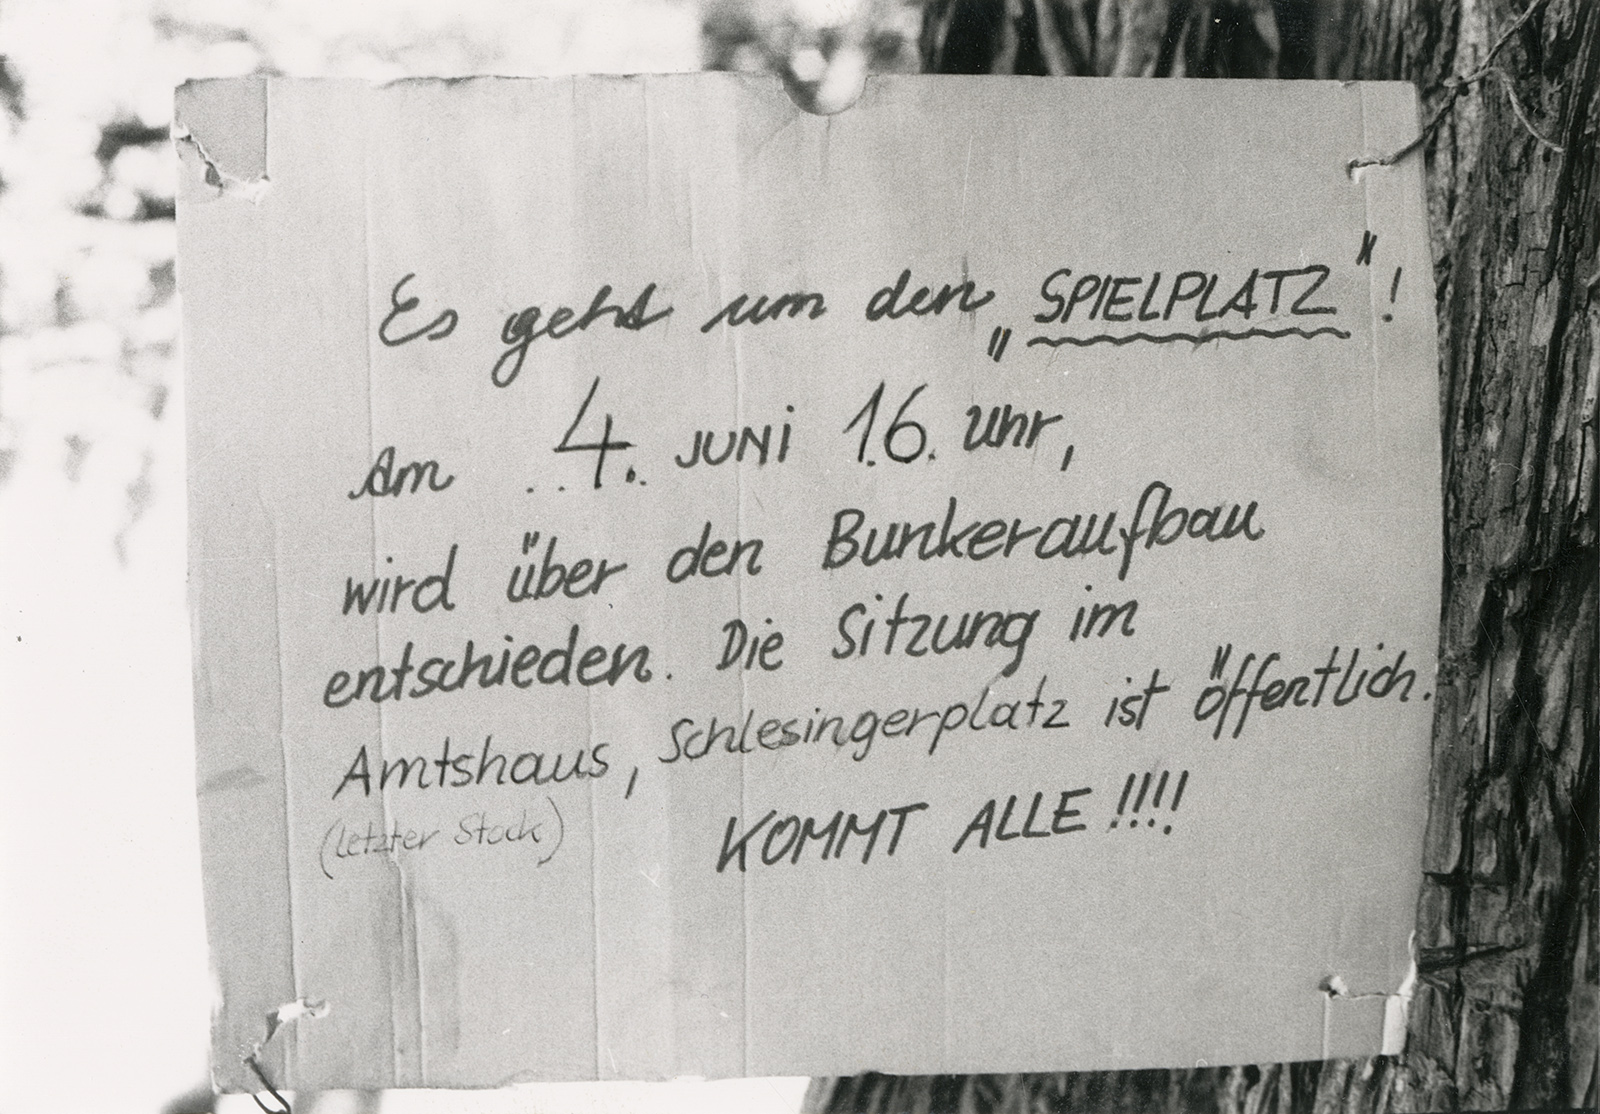 Es geht um den „SPIELPLATZ"!
Am ..4... JUNI 16. Uhr,
wird über den Bunkeraufbau
entschieden. Die Sitzung im
Amtshaus, Schlesingerplatz ist öffentlich.
(letzter Stock) KOMMT ALLE!!!!